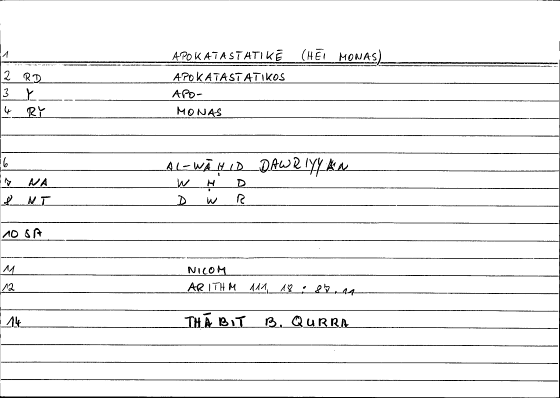 1 APOKATASTATIKĒ (HĒI MONAS)
2 RD APOKATASTATIKOS
3 Y APO-
4 RY MONAS
6 AL-WĀḤID DAWRIYYAN
7 NA W Ḥ D
8 NT D W R
10 SA
11 NICOM
12 ARITHM 111, 18 : 87.11
14 THĀBIT B. QURRA